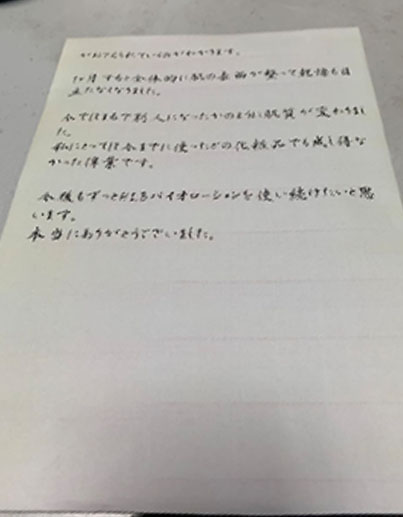 かおさえられているのがわかります。
1か月すると全体的に肌の表面が整って乾燥も目
立たなくなりました。
今ではまるで別人になったかのように肌質が変わりまし
た。
私にとっては今までに使ったどの化粧品でも成し得な
かった偉業です。
今後もずっと バイオローションを使い続けたいと思
います。
本当にありがとうございました。